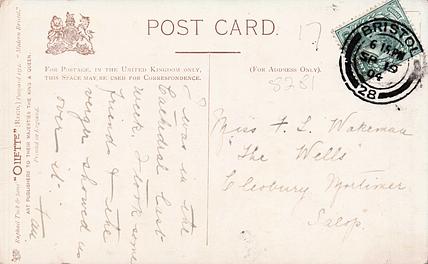 POST CARD.
17
FOR POSTAGE, IN THE UNITED KINGDOM ONLY,
THIS SPACE MAY BE USED FOR CORRESPONDENCE.
(FOR ADDRESS ONLY.)
8281
BRISTOL
SP 19
04
28
I was in the
Cathedral last
week, I took some
friend & the
verger showed us
over it.
Miss F. L. Wakeman
"The Wells"
Cleobury Mortimer
Salop.
Raphael Tuck & Sons' "OILETTE" [REGD.] Postcard "Modern Bristol."
ART PUBLISHERS TO THEIR MAJESTIES THE KING & QUEEN.
Printed in England.